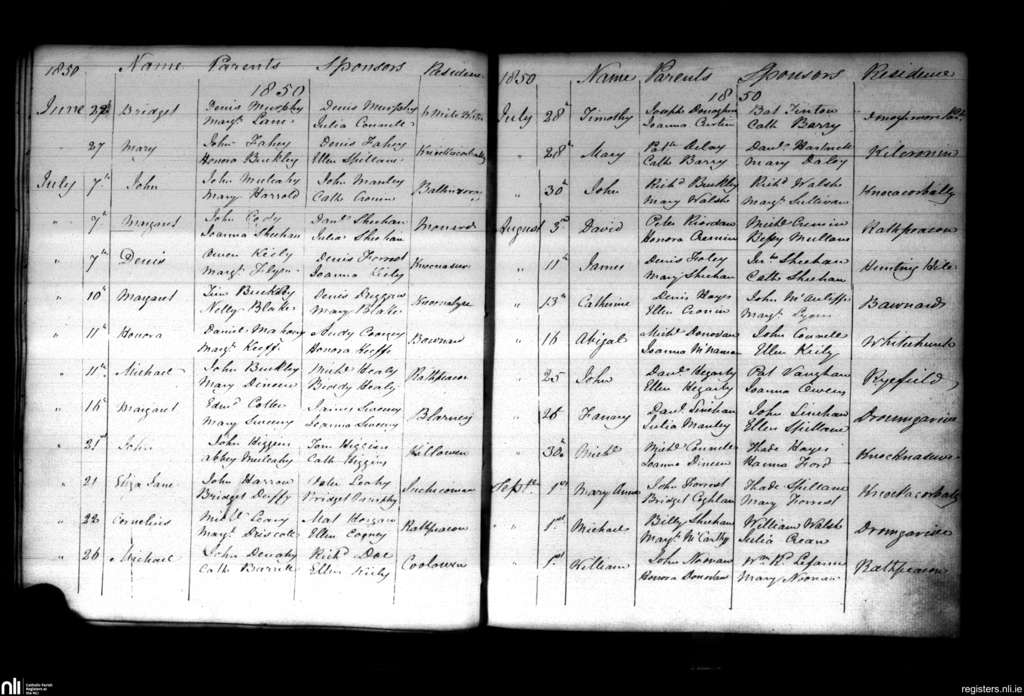 1850 Name Parents Sponsors Residence
1850
June 27 Bridget Denis Murphy Denis Murphy
Margt. Lane Julia Connell
" 27 Mary John Fahey Denis Fahey Knocknacorbally
Honora Buckley Ellen Spillane
July 7th John John Mulcahy John Manley
Mary Harrold Cath Cronin
" 7th Margaret John Cody Danl. Sheehan Monard
Joanna Sheehan Julia Sheehan
" 7th Denis Owen Kiely Denis Forrest
Margt. Joanna Kiely
" 10th Margaret Tim Buckley Denis Duggan
Nelly Blake Mary Blake
" 11th Honora Daniel Mahony Andy Cooney
Margt. Keeffe Honora Keeffe
" 11th Michael John Buckley Michl. Healy Rathpeacon
Mary Dineen Biddy Healy
" 16th Margaret Edmd. Cotter James Sweeny Blarney
Mary Sweeny Joanna Sweeny
" 21st John John Higgins Tom Higgins Killowen
Abbey Mulcahy Cath Higgins
" 21 Eliza Jane John Harrow Peter Leahy
Bridget Duffy Bridget Murphy
" 22 Cornelius Michl. Leary Mat Horgan Rathpeacon
Margt. Driscoll Ellen Cogney
" 26 Michael John Denahy Richd. Doe Coolowen
Cath Barrett Ellen Kiely
1850 Name Parents Sponsors Residence
1850
July 28th Timothy Joseph Donoghue Bat Linton
Joanna Curtin Cath Barry
" 28th Mary Patk. Delay Danl. Hartnett Kilcronin
Cath Barry Mary Daley
" 30th John Richd. Buckley Richd. Walsh Knocacorbally
Mary Walsh Margt. Sullivan
August 3rd David Peter Riordan Michl. Cremin Rathpeacon
Honora Cremin Bessy Mullane
" 11th James Denis Foley Jno. Sheehan Hunting Hill
Mary Sheehan Cath Sheehan
" 13th Catherine Denis Hayes John McAuliffe Bawnard
Ellen Cronin Margt. Lyons
" 16 Abigal Michl. Donovan John Connell Whitechurch
Joanna McNamara Ellen Kiely
" 25 John Danl. Hegarty Pat Vaughan Ryefield
Ellen Hegarty Joanna Owens
" 26 Fanny Danl. Linehan John Linehan Dromgariff
Julia Manley Ellen Spillane
" 30th Michl. Michl. Connell Thade Hayes
Joanna Dineen Hanna Ford
Septr. 1st Mary Anne John Forrest Thade Spillane Knocknacorbally
Bridget Coghlan Mary Forrest
" 1st Michael Billy Sheehan William Walsh Dromgariff
Margt. McCarthy Julia Crean
" 1st William John Noonan Wm. Rd. Lefanu Rathpeacon
Honora Donovan Mary Noonan
nli Catholic Parish
Registers at
the NLI
registers.nli.ie